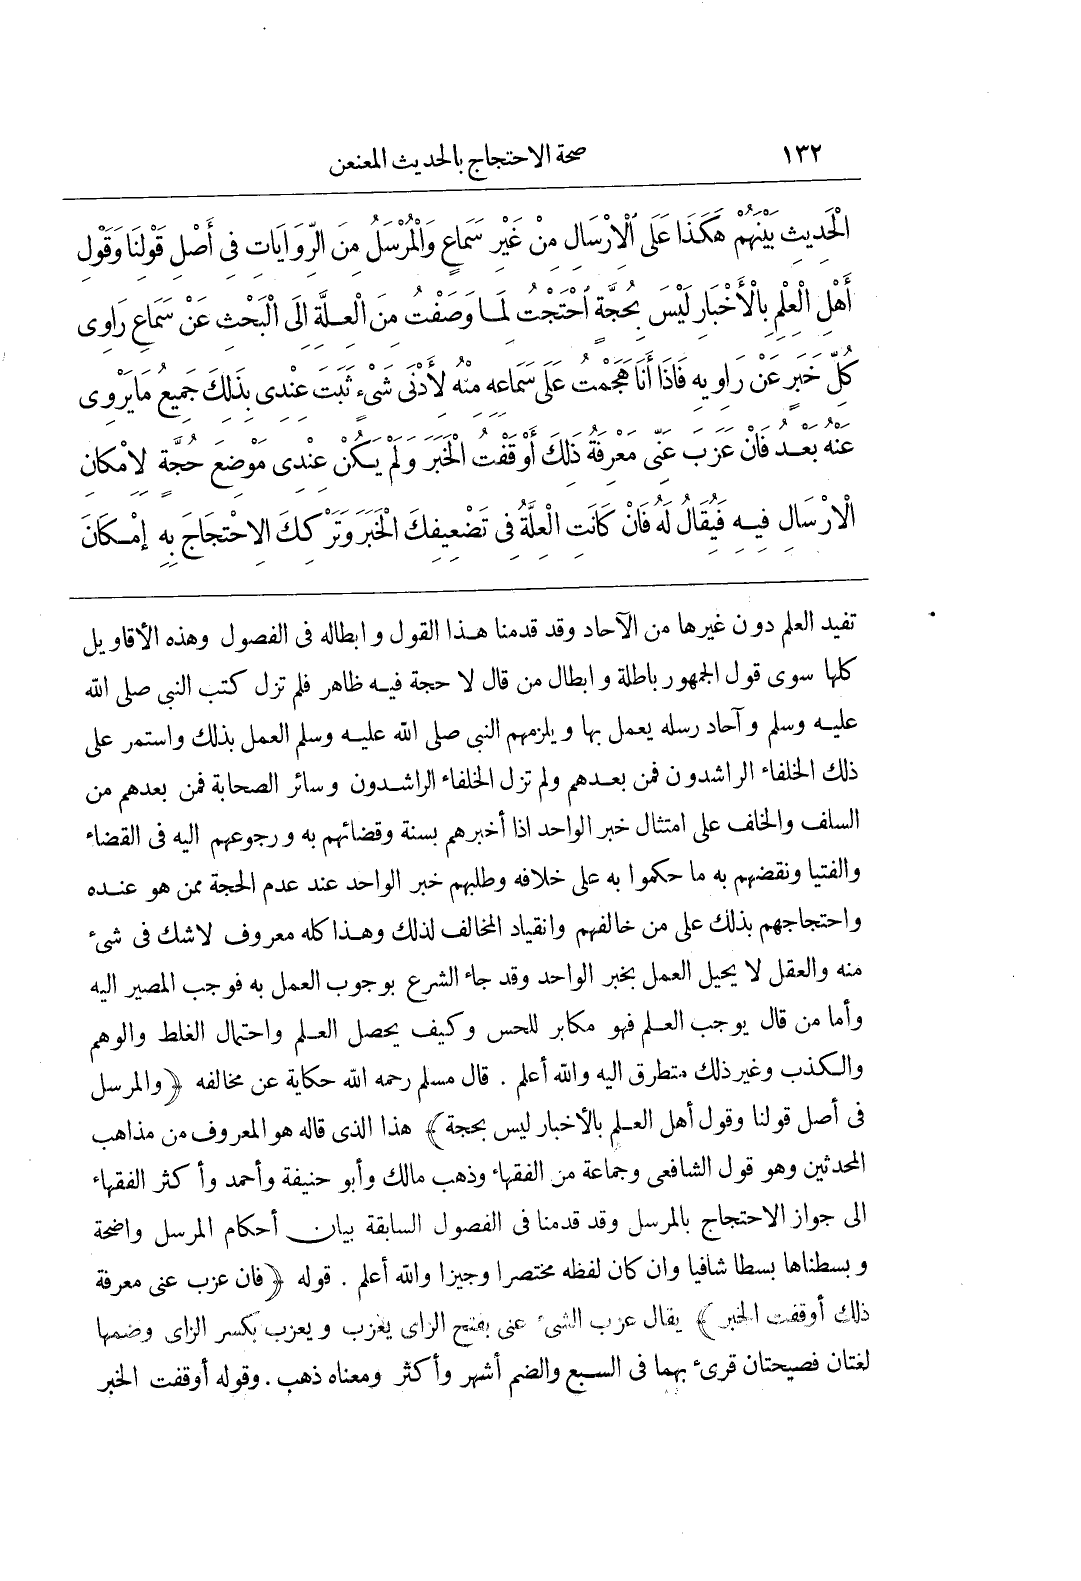 ١٣٢ صحة الاحتجاج بالحديث المعنعن
الْحَدِيثِ بَيْنَهُمْ هَكَذَا عَلَى الْارْسَالِ مِنْ غَيْرِ سَمَاعٍ وَالْمُرْسَلُ مِنَ الرِّوَايَاتِ فِى أَصْلِ قَوْلِنَا وَقَوْلِ
أَهْلِ الْعِلْمِ بِالْأَخْبَارِ لَيْسَ بِحُجَّةٍ احْتَجْتُ لِمَا وَصَفْتُ مِنَ الْعِلَّةِ الَى الْبَحْثِ عَنْ سَمَاعِ رَاوِى
كُلِّ خَبَرٍ عَنْ رَاوِيهِ فَاذَا أَنَا هَجَمْتُ عَلَى سَمَاعِهِ مِنْهُ لِأَدْنَى شَىْءٍ ثَبَتَ عِنْدِى بِذَلِكَ جَمِيعُ مَايَرْوِى
عَنْهُ بَعْدُ فَانْ عَزَبَ عَنِّى مَعْرِفَةُ ذَلِكَ أَوْقَفْتُ الْخَبَرَ وَلَمْ يَكُنْ عِنْدِى مَوْضِعَ حُجَّةٍ لِامْكَانِ
الْارْسَالِ فِيهِ فَيُقَالُ لَهُ فَانْ كَانَتِ الْعِلَّةُ فِى تَضْعِيفِكَ الْخَبَرَ وَتَرْكِكَ الِاحْتِجَاجَ بِهِ إمْكَانَ
تفيد العلم دون غيرها من الآحاد وقد قدمنا هذا القول وابطاله فى الفصول وهذه الأقاويل
كلها سوى قول الجمهور باطلة وابطال من قال لا حجة فيه ظاهر فلم تزل كتب النبى صلى الله
عليه وسلم وآحاد رسله يعمل بها ويلزمهم النبى صلى الله عليه وسلم العمل بذلك واستمر على
ذلك الخلفاء الراشدون فمن بعدهم ولم تزل الخلفاء الراشدون وسائر الصحابة فمن بعدهم من
السلف والخلف على امتثال خبر الواحد اذا أخبرهم بسنة وقضائهم به ورجوعهم اليه فى القضاء
والفتيا ونقضهم به ما حكموا به على خلافه وطلبهم خبر الواحد عند عدم الحجة ممن هو عنده
واحتجاجهم بذلك على من خالفهم وانقياد المخالف لذلك وهذا كله معروف لاشك فى شىء
منه والعقل لا يحيل العمل بخبر الواحد وقد جاء الشرع بوجوب العمل به فوجب المصير اليه
وأما من قال يوجب العلم فهو مكابر للحس وكيف يحصل العلم واحتمال الغلط والوهم
والكذب وغيرذلك متطرق اليه والله أعلم . قال مسلم رحمه الله حكاية عن مخالفه ﴿والمرسل
فى أصل قولنا وقول أهل العلم بالأخبار ليس بحجة﴾ هذا الذى قاله هو المعروف من مذاهب
المحدثين وهو قول الشافعى وجماعة من الفقهاء وذهب مالك وأبو حنيفة وأحمد وأكثر الفقهاء
الى جواز الاحتجاج بالمرسل وقد قدمنا فى الفصول السابقة بيان أحكام المرسل واضحة
وبسطناها بسطا شافيا وان كان لفظه مختصرا وجيزا والله أعلم . قوله ﴿فان عزب عنى معرفة
ذلك أوقفت الخبر﴾ يقال عزب الشىء عنى بفتح الزاى يعزب ويعزب بكسر الزاى وضمها
لغتان فصيحتان قرىء بهما فى السبع والضم أشهر وأكثر ومعناه ذهب . وقوله أوقفت الخبر